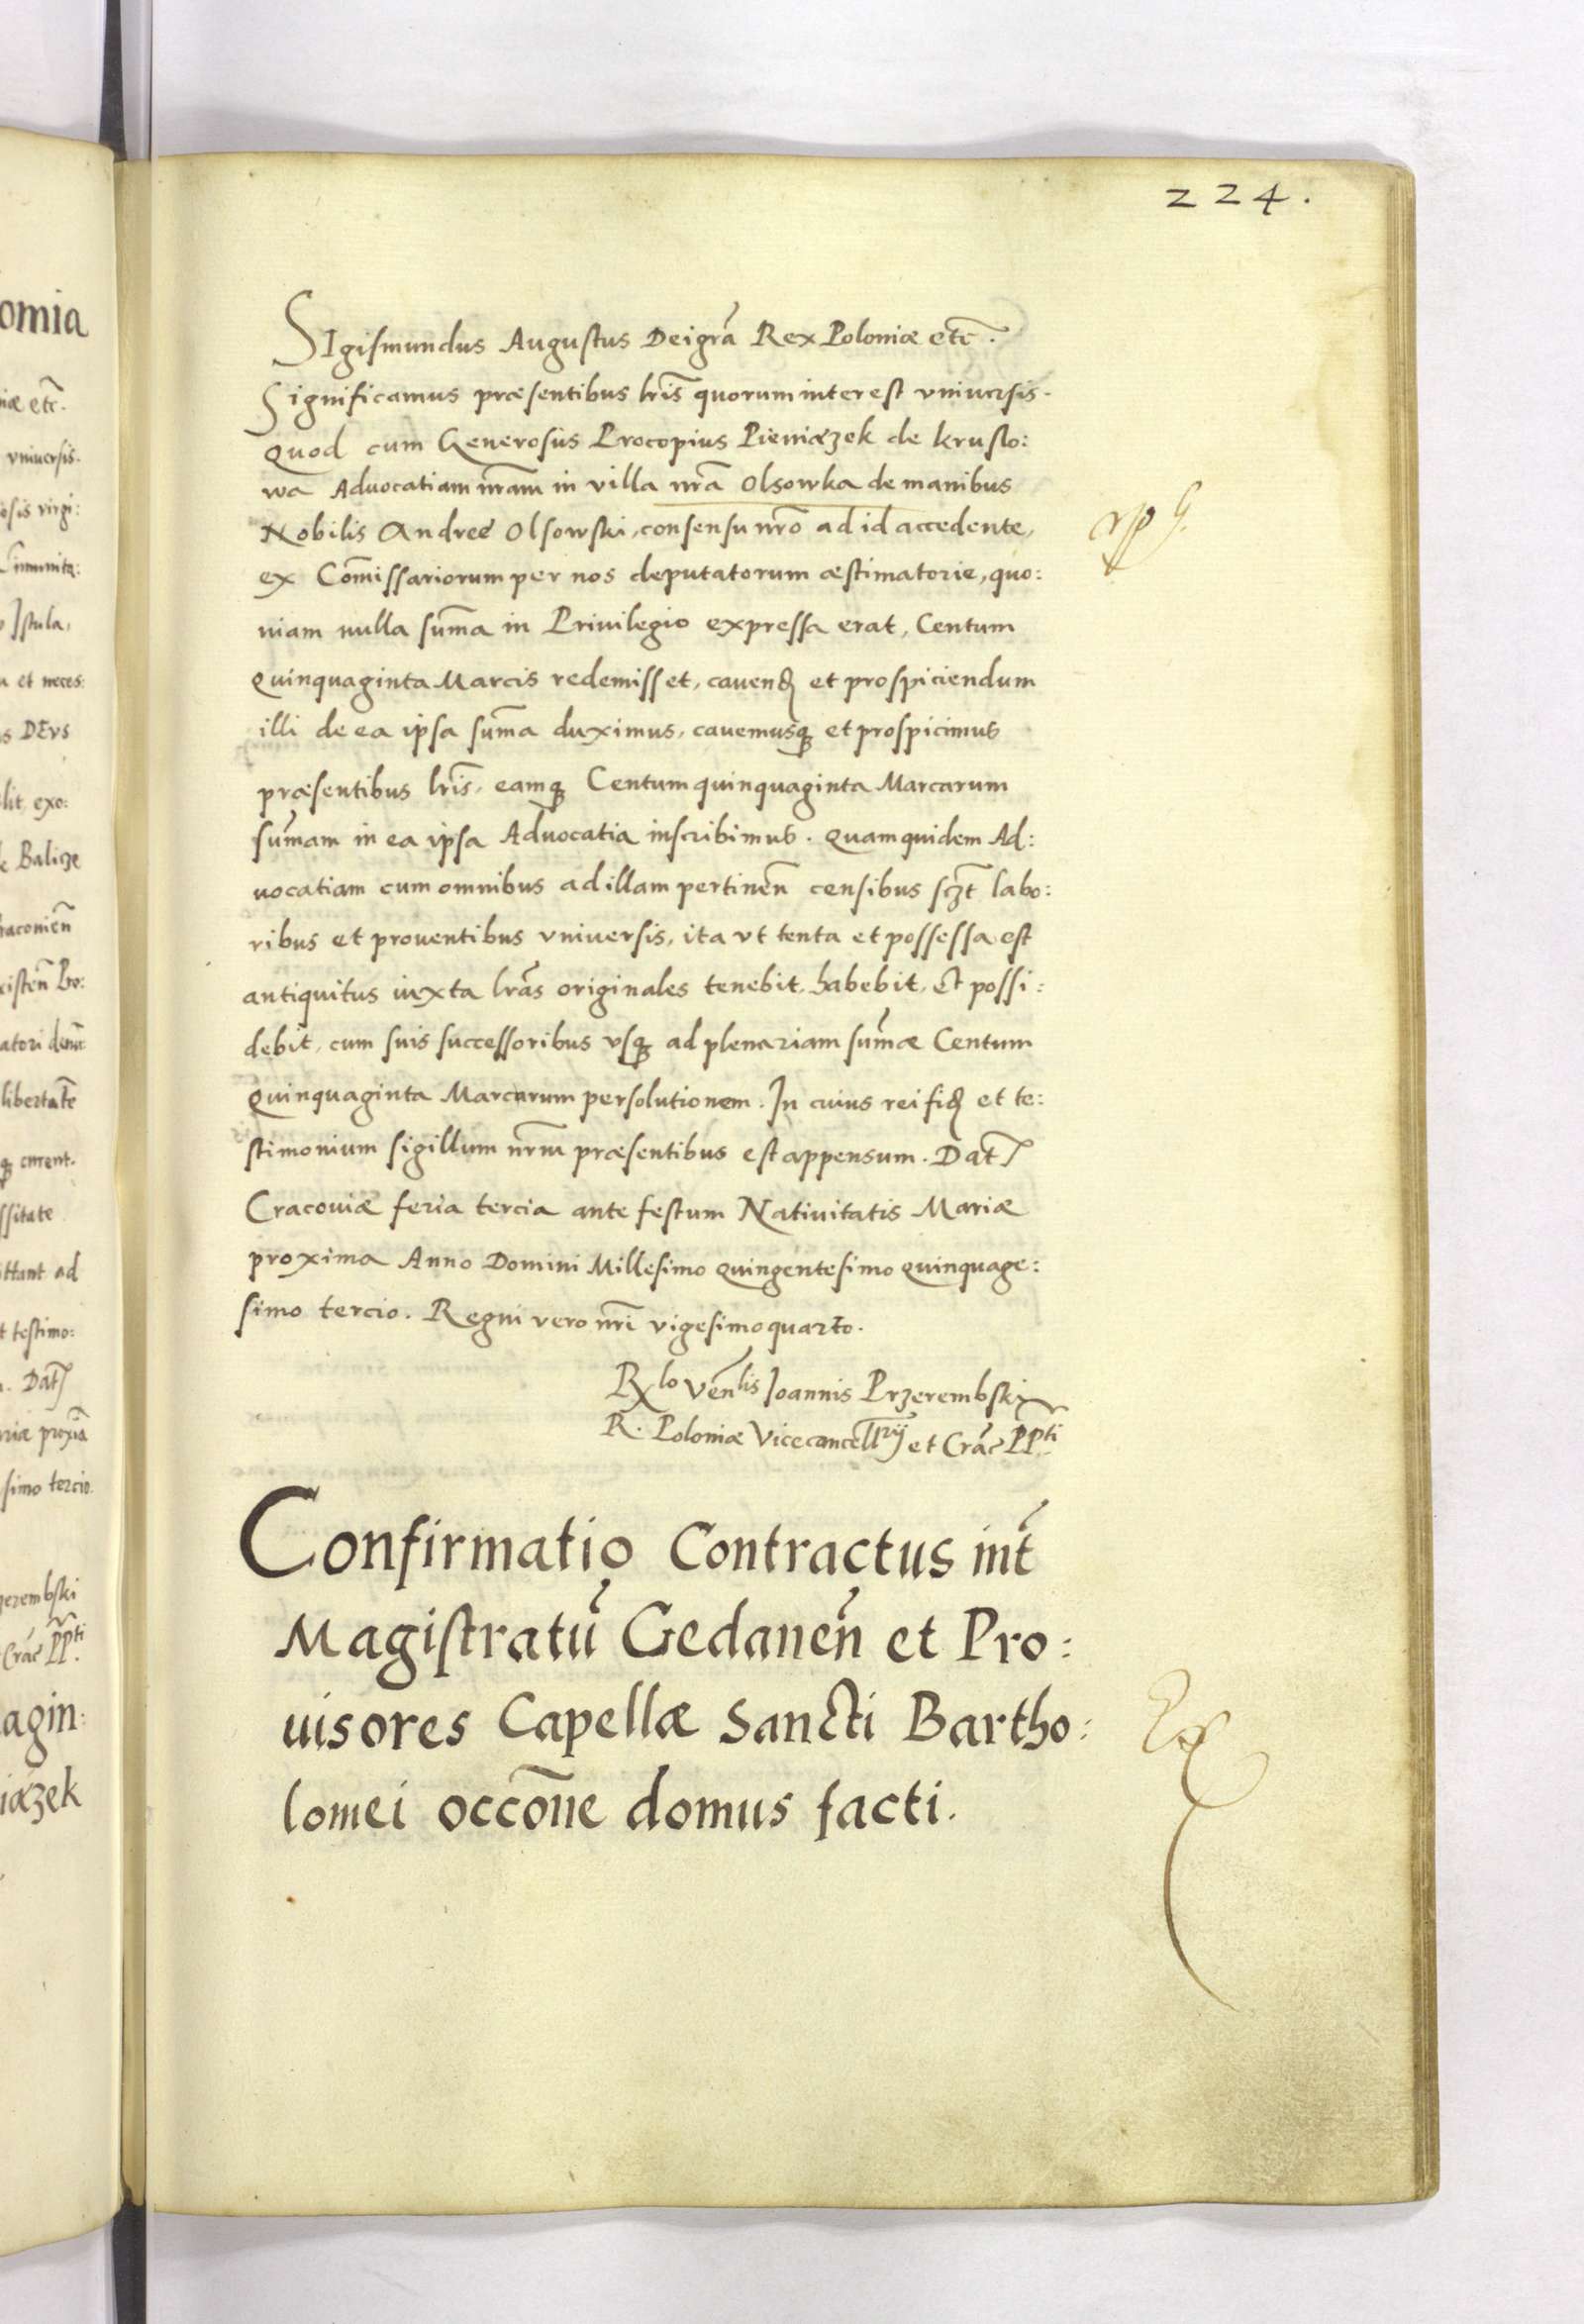 224.
omia
SIgismundus Augustus Dei grã Rex Poloniæ etc̃.
Significamus præsentibus lr̃is quorum interest vniuersis.
Quod cum Generosus Procopius Pieniązek de kruslo:
wa Aduocatiam nr̃am in villa nr̃a Olsowka de manibus
Nobilis Andreę Olsowski, consensu nr̃o ad id accedente,
ex Com̃issariorum per nos deputatorum æstimatorie, quo:
niam nulla sum̃a in Priuilegio expressa erat, Centum
quinquaginta Marcis redemisset, cauenđ et prospiciendum
illi de ea ipsa sum̃a duximus, cauemusqꝫ et prospicimus
præsentibus lr̃is, eamqꝫ Centum quinquaginta Marcarum
sum̃am in ea ipsa Aduocatia inscribimus. Quam quidem Ad:
uocatiam cum omnibus ad illam pertineñ censibus sczt̃ labo:
ribus et prouentibus vniuersis, ita vt tenta et possessa est
antiquitus iuxta lr̃as originales tenebit, habebit, et possi:
debit, cum suis successoribus vsqꝫ ad plenariam sum̃æ Centum
quinquaginta Marcarum persolutionem. In cuius rei fiđ et te:
stimonium sigillum nr̃m præsentibus est appensum. Dat̃
Cracouiæ feria tercia ante festum Natiuitatis Mariæ
proxima Anno Domini Millesimo quingentesimo quinquage:
simo tercio. Regni vero nr̃i vigesimo quarto.
Rlo Veñlis Ioannis Przerembski
R. Poloniæ Vicecancellr̃ij et Crãc PPti
Confirmatio Contractus int̃
Magistratũ Gedaneñ et Pro:
uisores Capellæ Sancti Bartho:
lomei occõne domus facti.
Ex